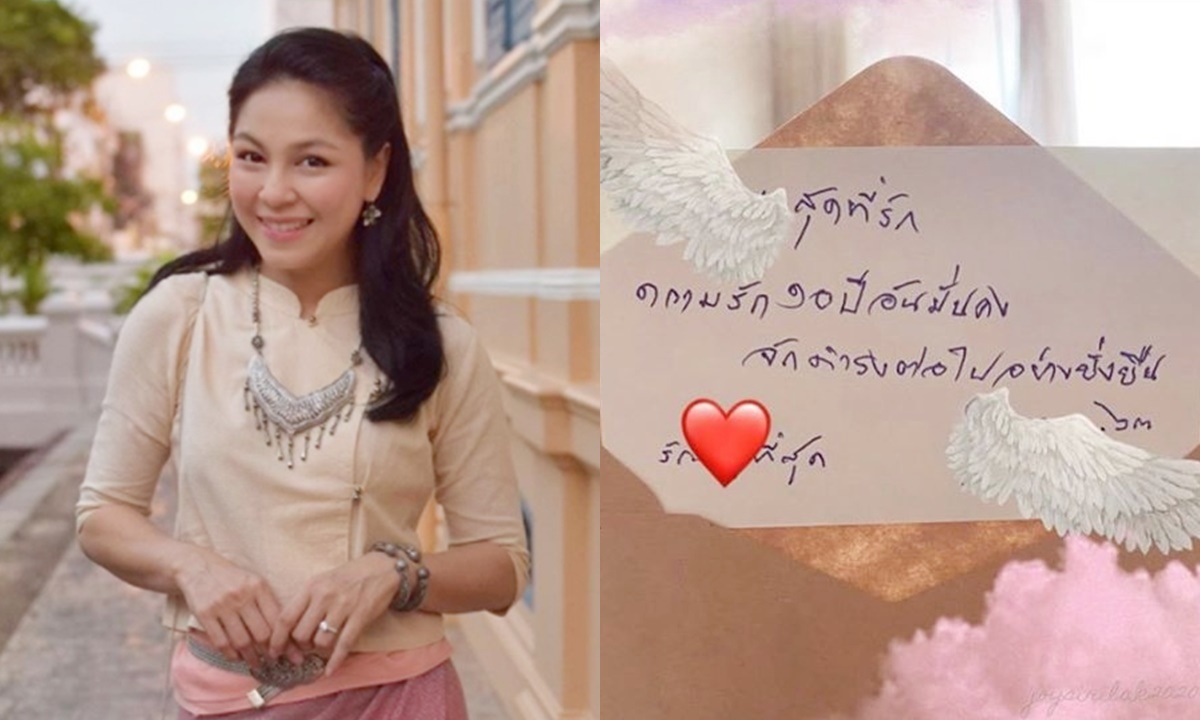 สุดที่รัก
ความรัก ๑๐ ปี อันมั่นคง
จักดำรงต่อไปอย่างยั่งยืน
๖๓
รัก ที่สุด
joysirilak2020